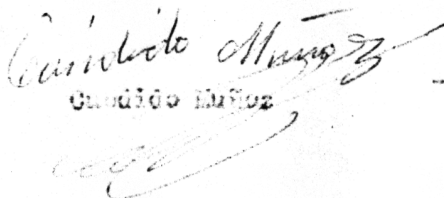 Cándido Muñoz
Candido Muñoz